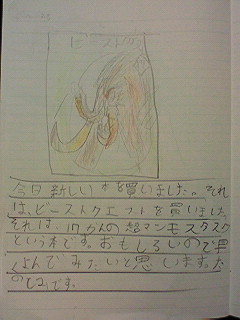 ビースト
今日新しい本を買いました。それ
は、ビーストクエストを買いました。
それは、17かんの超マンモスタスク
という本です。おもしろいので早
くよんでみたいと思います。た
のしみです。